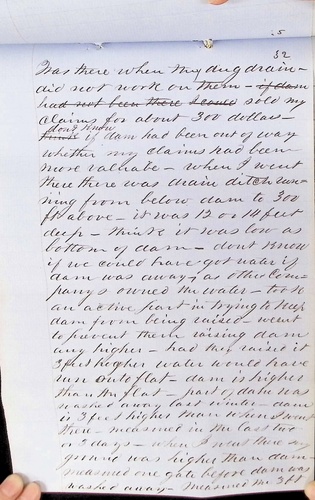 5
32
Was there when they dug drain -
did not work on them - if dam
had not been there I could sold my
claims for about 300 dollars -
dont know
think if dam had been out of way
whether my claims had been
more valuable - when I went
there there was drain ditch run-
ning from below dam to 300
ft above - it was 12 or 14 feet
deep - think it was low as
bottom of dam - dont know
if we could have got water if
dam was away, as other Com-
panys owned the water - took
an active part in trying to keep
dam from being raised - went
to prevent them raising dam
any higher - had they raised it
3 feet higher water would have
run onto flat - dam is higher
than the flat - part of dam was
washed away last winter - dam
is 3 feet higher than when I went
there - measured in the last two
or 3 days - when I went there my
ground was higher than dam -
measured one gate before dam was
washed away - measured the 3 ft